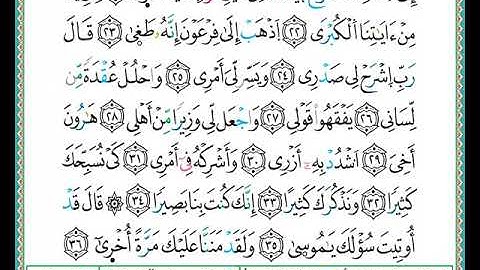 مِنْ ءَايَٰتِنَا ٱلْكُبْرَى ٢٢ ٱذْهَبْ إِلَىٰ فِرْعَوْنَ إِنَّهُۥ طَغَىٰ ٢٣ قَالَ
رَبِّ ٱشْرَحْ لِى صَدْرِى ٢٤ وَيَسِّرْ لِىٓ أَمْرِى ٢٥ وَٱحْلُلْ عُقْدَةً مِّن
لِّسَانِى ٢٦ يَفْقَهُوا۟ قَوْلِى ٢٧ وَٱجْعَل لِّى وَزِيرًا مِّنْ أَهْلِى ٢٨ هَٰرُونَ
أَخِىَ ٢٩ ٱشْدُدْ بِهِۦٓ أَزْرِى ٣٠ وَأَشْرِكْهُ فِىٓ أَمْرِى ٣١ كَىْ نُسَبِّحَكَ
كَثِيرًا ٣٢ وَنَذْكُرَكَ كَثِيرًا ٣٣ إِنَّكَ كُنتَ بِنَا بَصِيرًا ٣٤ ۞ قَالَ قَدْ
أُوتِيتَ سُؤْلَكَ يَٰمُوسَىٰ ٣٥ وَلَقَدْ مَنَنَّا عَلَيْكَ مَرَّةً أُخْرَىٰٓ ٣٦